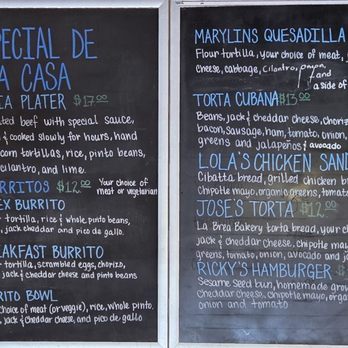 PECIAL DE
A CASA
IA PLATER $17.00
ted beef with special sauce,
& cooked slowly for hours, hand
corn tortillas, rice, pinto beans,
cilantro, and lime.
RRITOS $12.00 Your choice of
meat or vegetarian
EX BURRITO
tortilla, rice & whole pinto beans,
, jack cheddar and pico de gallo.
AKFAST BURRITO
tortilla, scrambled eggs, chorizo,
, jack & cheddar cheese and pinto beans
RITO BOWL
choice of meat (or veggie), rice, whole pinto
, jack & cheddar cheese, and pico de gallo
MARYLINS QUESADILLA
Flour tortilla, your choice of meat,
cheese, cabbage, cilantro, onion
and
a side of
TORTA CUBANA $13.00
Beans, jack & cheddar cheese, chori
bacon, sausage, ham, tomato, onion,
greens and jalapeños & avocado
LOLA'S CHICKEN SAND
Cibatta bread, grilled chicken b
chipotle mayo, organic greens, tomat
JOSE'S TORTA $12.00
La Brea Bakery torta bread, your ch
jack & cheddar cheese, chipotle may
greens, tomato, onion, avocado and j
RICKY'S HAMBURGER $
Sesame seed bun, homemade gro
cheddar cheese, chipotle mayo, orga
onion and tomato